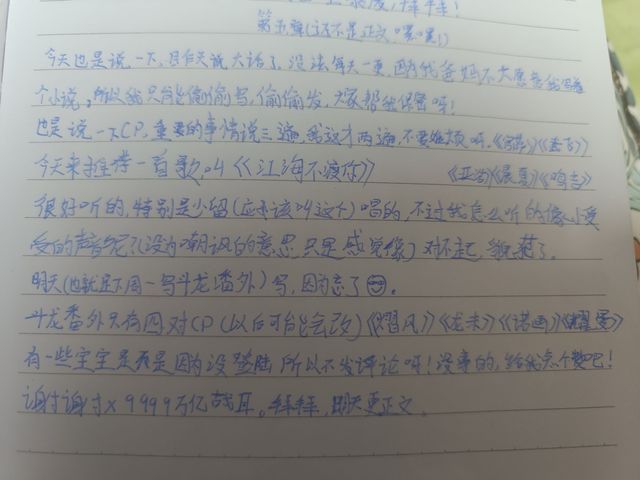 第五章(这不是正文,嘿嘿!)
今天也是说一下,昨天说大话了,没法每天一更,因为我爸妈不大愿意我写这
个小说,所以我只能偷偷写,偷偷发,大家帮我保密呀!
也是说一下CP,重要的事情说三遍,我这才两遍,不要嫌烦呀,
今天来推荐一首歌叫《《江海不渡你》》
很好听的,特别是少留(应该叫这个)唱的,不过我怎么听的像小受
受的声音呢?(没有嘲讽的意思,只是感觉像)对不起,
明天(也就是下周一写斗龙番外)写,因为忘了
斗龙番外只有四对CP(以后可能会改)《熠风》《龙未》《诺画》
有一些宝宝是不是因为没登陆所以不发评论呀!没事的,给我点个赞吧!
谢谢×9999万亿哉耳。拜拜,明天更正文。